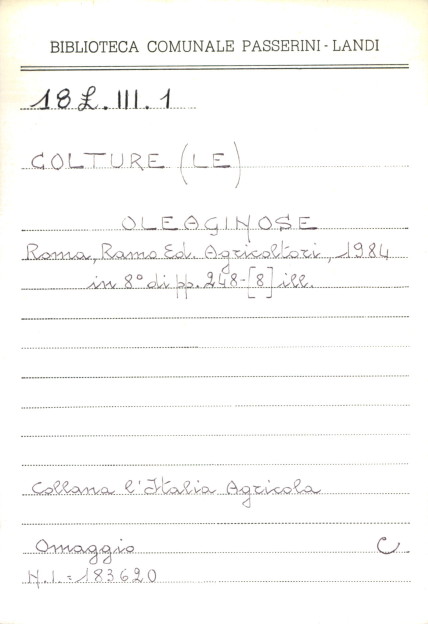 BIBLIOTECA COMUNALE PASSERINI - LANDI
18 £. III. 1
COLTURE (LE)
OLEAGINOSE
Roma, Ramo Ed. Agricoltori, 1984
in 8° di pp. 248-[8] ill.
Collana l'Italia Agricola
Omaggio C
N.I. = 183620